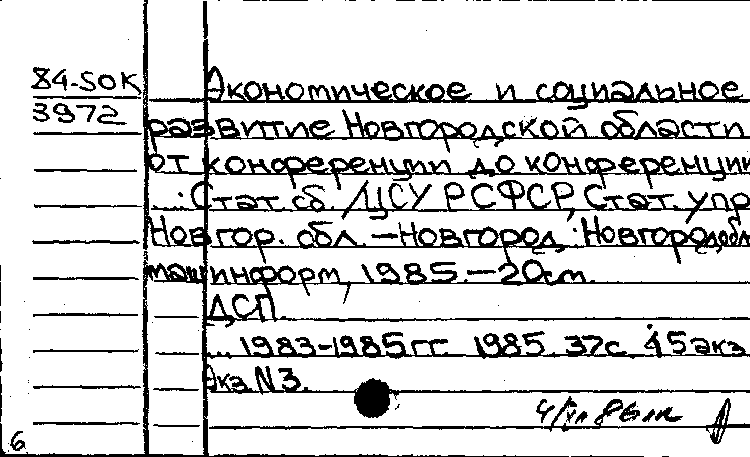 84-50К
3972
Экономическое и социальное
развитие Новгородской области
от конференции до конференции
...: Стат. сб. /ЦСУ РСФСР, Стат. упр.
Новгор. обл. – Новгород, : Новгородобл
машинформ, 1985. – 20 см.
ДСП.
... 1983-1985 гг. 1985. 37с. 45 экз
Экз N 3.
6